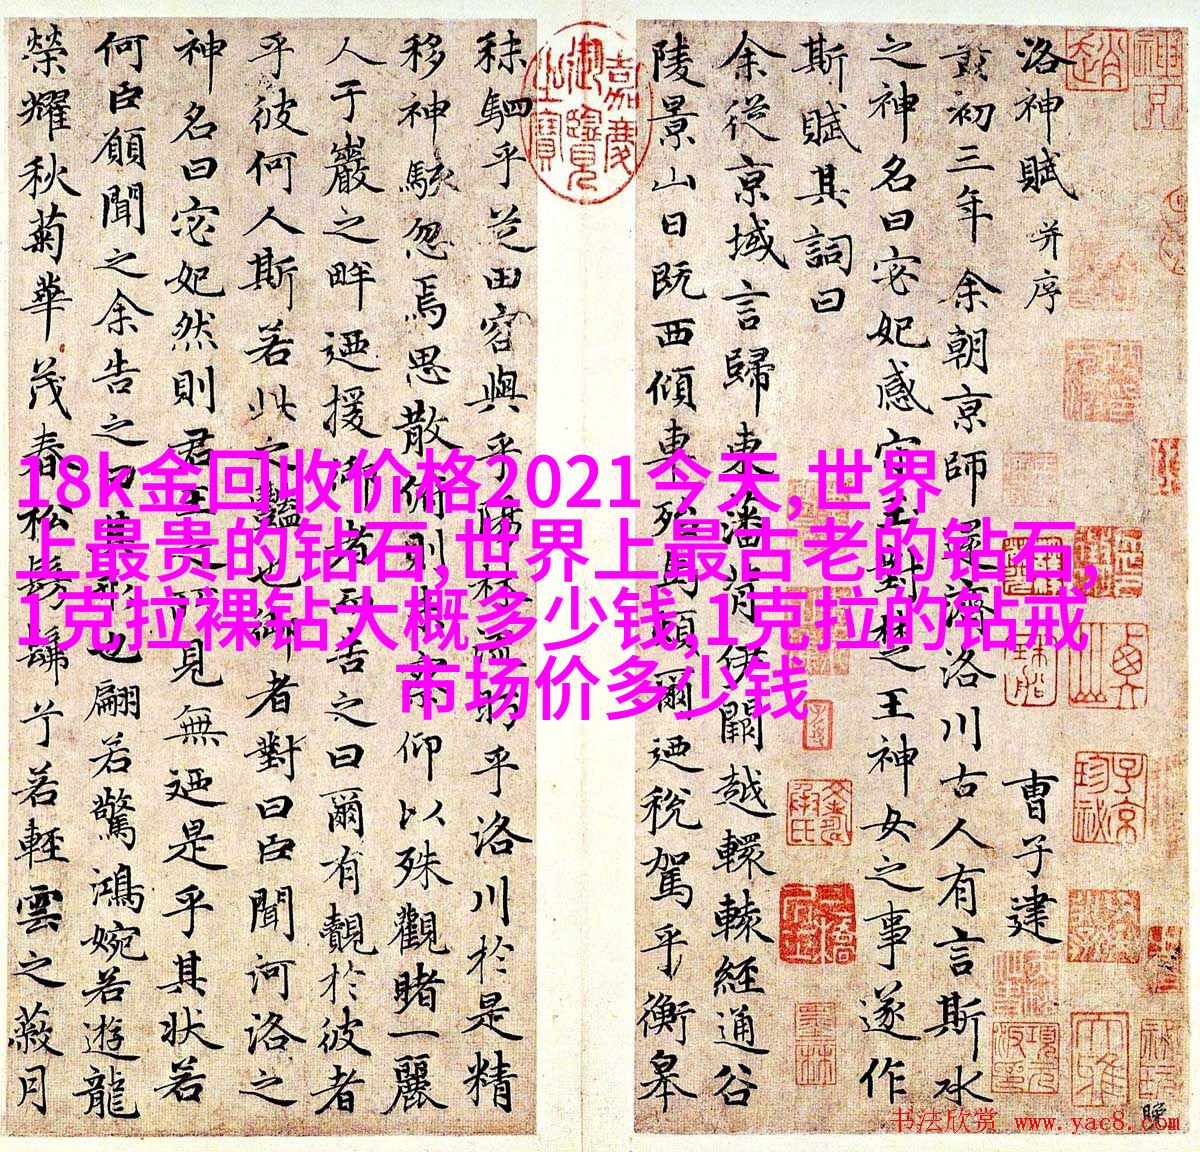 洛神賦 并序
曹子建
黃初三年余朝京師還濟洛川古人有言斯水
之神名曰宓妃感宋玉對楚王神女之事遂作
斯賦其詞曰
余從京域言歸東藩背伊闕越轘轅經通谷
陵景山日既西傾車殆馬煩爾迺稅駕乎蘅皋
秣駟乎芝田容與乎陽林流眄乎洛川於是精
移神駭忽焉思散俯則未察仰以殊觀睹一麗
人于巖之畔迺援御者而告之曰爾有覿於彼者
乎彼何人斯若此之豔也御者對曰臣聞河洛之
神名曰宓妃然則君王之所見無迺是乎其狀若
何臣願聞之余告之曰其形也翩若驚鴻婉若遊龍
榮耀秋菊華茂春松髣髴兮若輕雲之蔽月
嘉慶御覽之寶
18k金回收价格2021今天,世界
上最贵的钻石,世界上最古老的钻石,
1克拉裸钻大概多少钱,1克拉的钻戒
市场价多少钱
书法欣赏 www.yac8.com